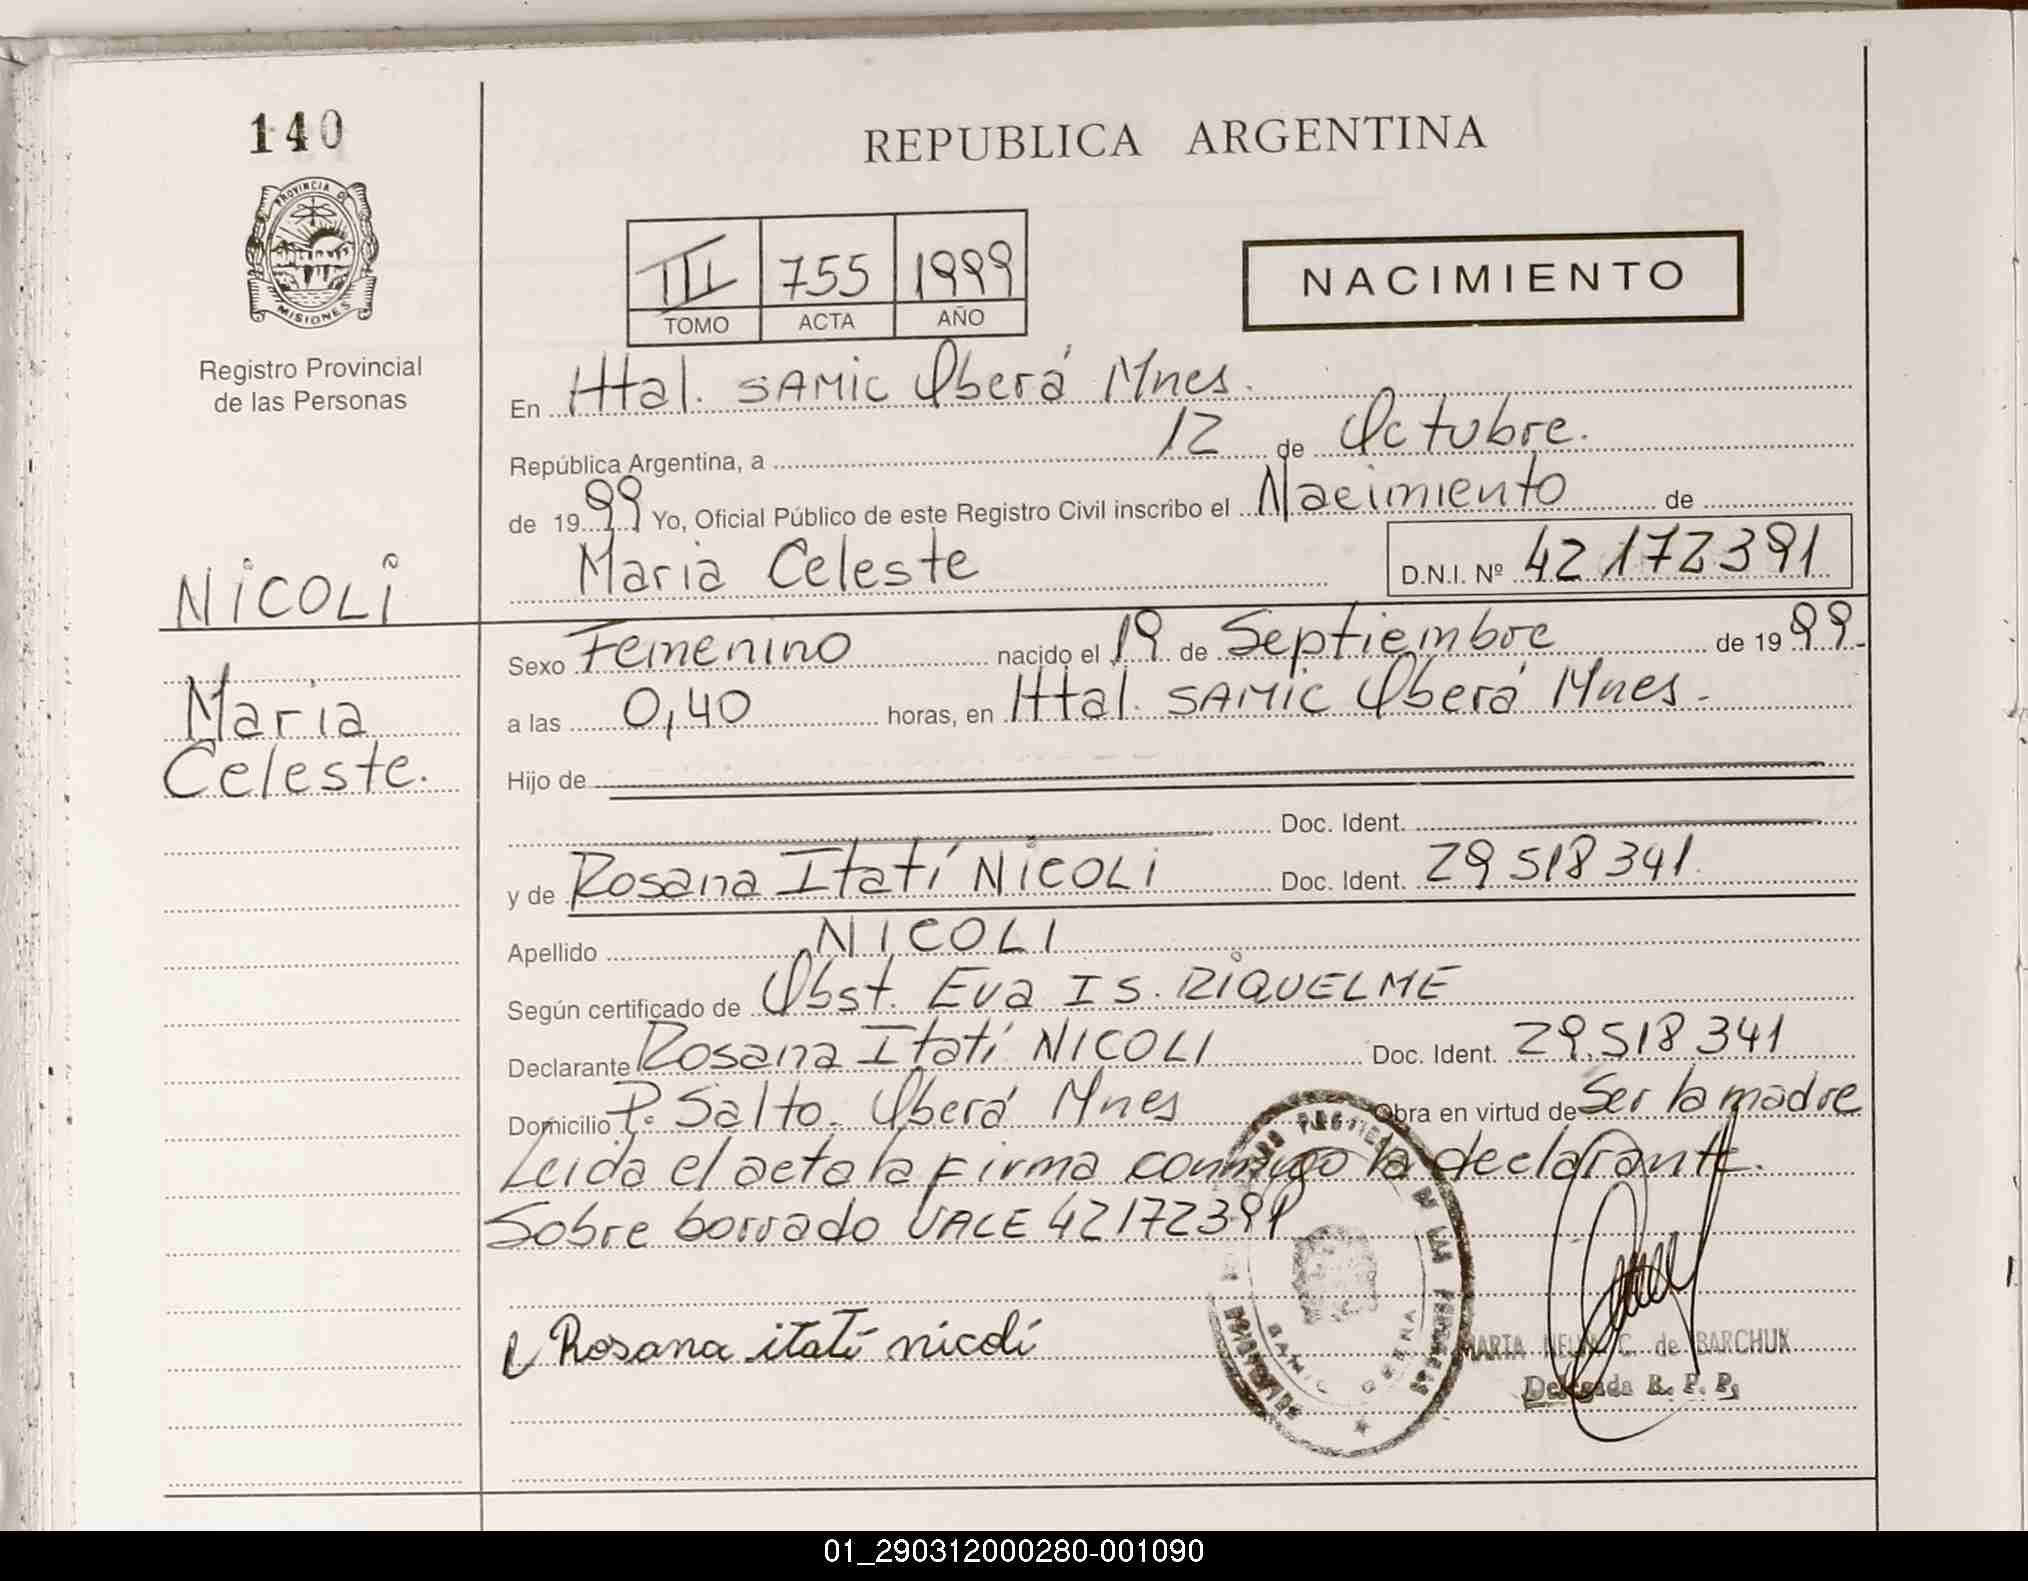 140
REPUBLICA ARGENTINA
PROVINCIA DE
MISIONES
III 755 1999
TOMO ACTA AÑO
NACIMIENTO
Registro Provincial
de las Personas
En Htal. SAMIC Oberá Mnes.
República Argentina, a 12 de Octubre.
de 1999 Yo, Oficial Público de este Registro Civil inscribo el Nacimiento de
Maria Celeste D.N.I. Nº 42172391
NICOLI
Sexo Femenino nacido el 19 de Septiembre de 1999.-
Maria
a las 0,40 horas, en Htal. SAMIC Oberá Mnes.
Celeste.
Hijo de
Doc. Ident.
y de Rosana Itatí NICOLI Doc. Ident. 29518341.
Apellido NICOLI
Según certificado de Obst. Eva IS. RIQUELME
Declarante Rosana Itatí NICOLI Doc. Ident. 29.518341
Domicilio P. Salto. Oberá Mnes Obra en virtud de Ser la madre
Leida el acta la firma conmigo la declarante.
Sobre borrado VALE 42172391
Rosana itatí nicoli
MARIA C. de BARCHUK
Delegada R. P. P.
DE LAS PERSONAS
SAMIC OBERA
MISIONES
01_290312000280-001090